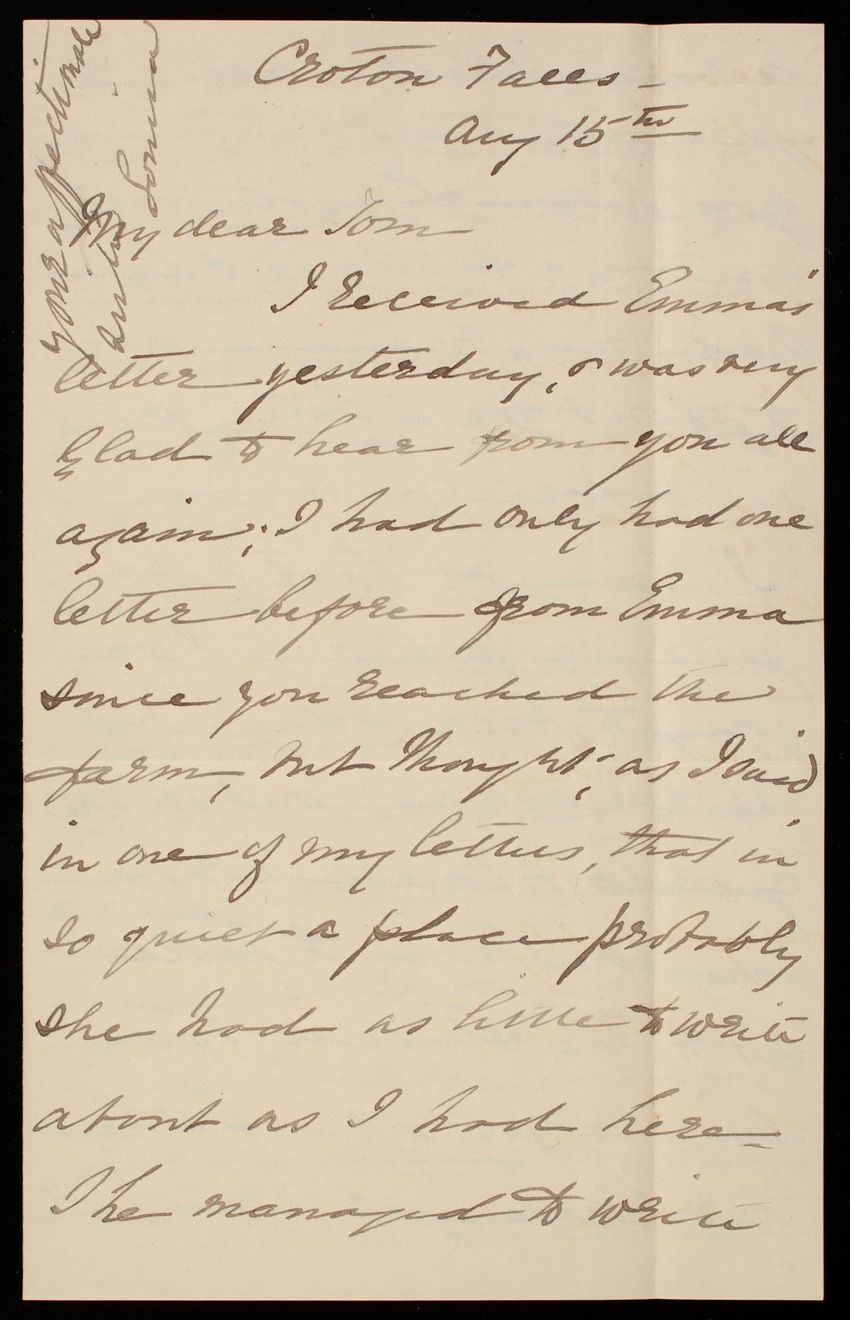 Croton Falls -
Aug 15th
My dear Tom
I received Emma's
letter yesterday, & was very
glad to hear from you all
again; I had only had one
letter before from Emma
since you reached the
farm, but thought, as I said
in one of my letters, that in
so quiet a place probably
she had as little to write
about as I had here -
She managed to write
your affectionate
Louisa